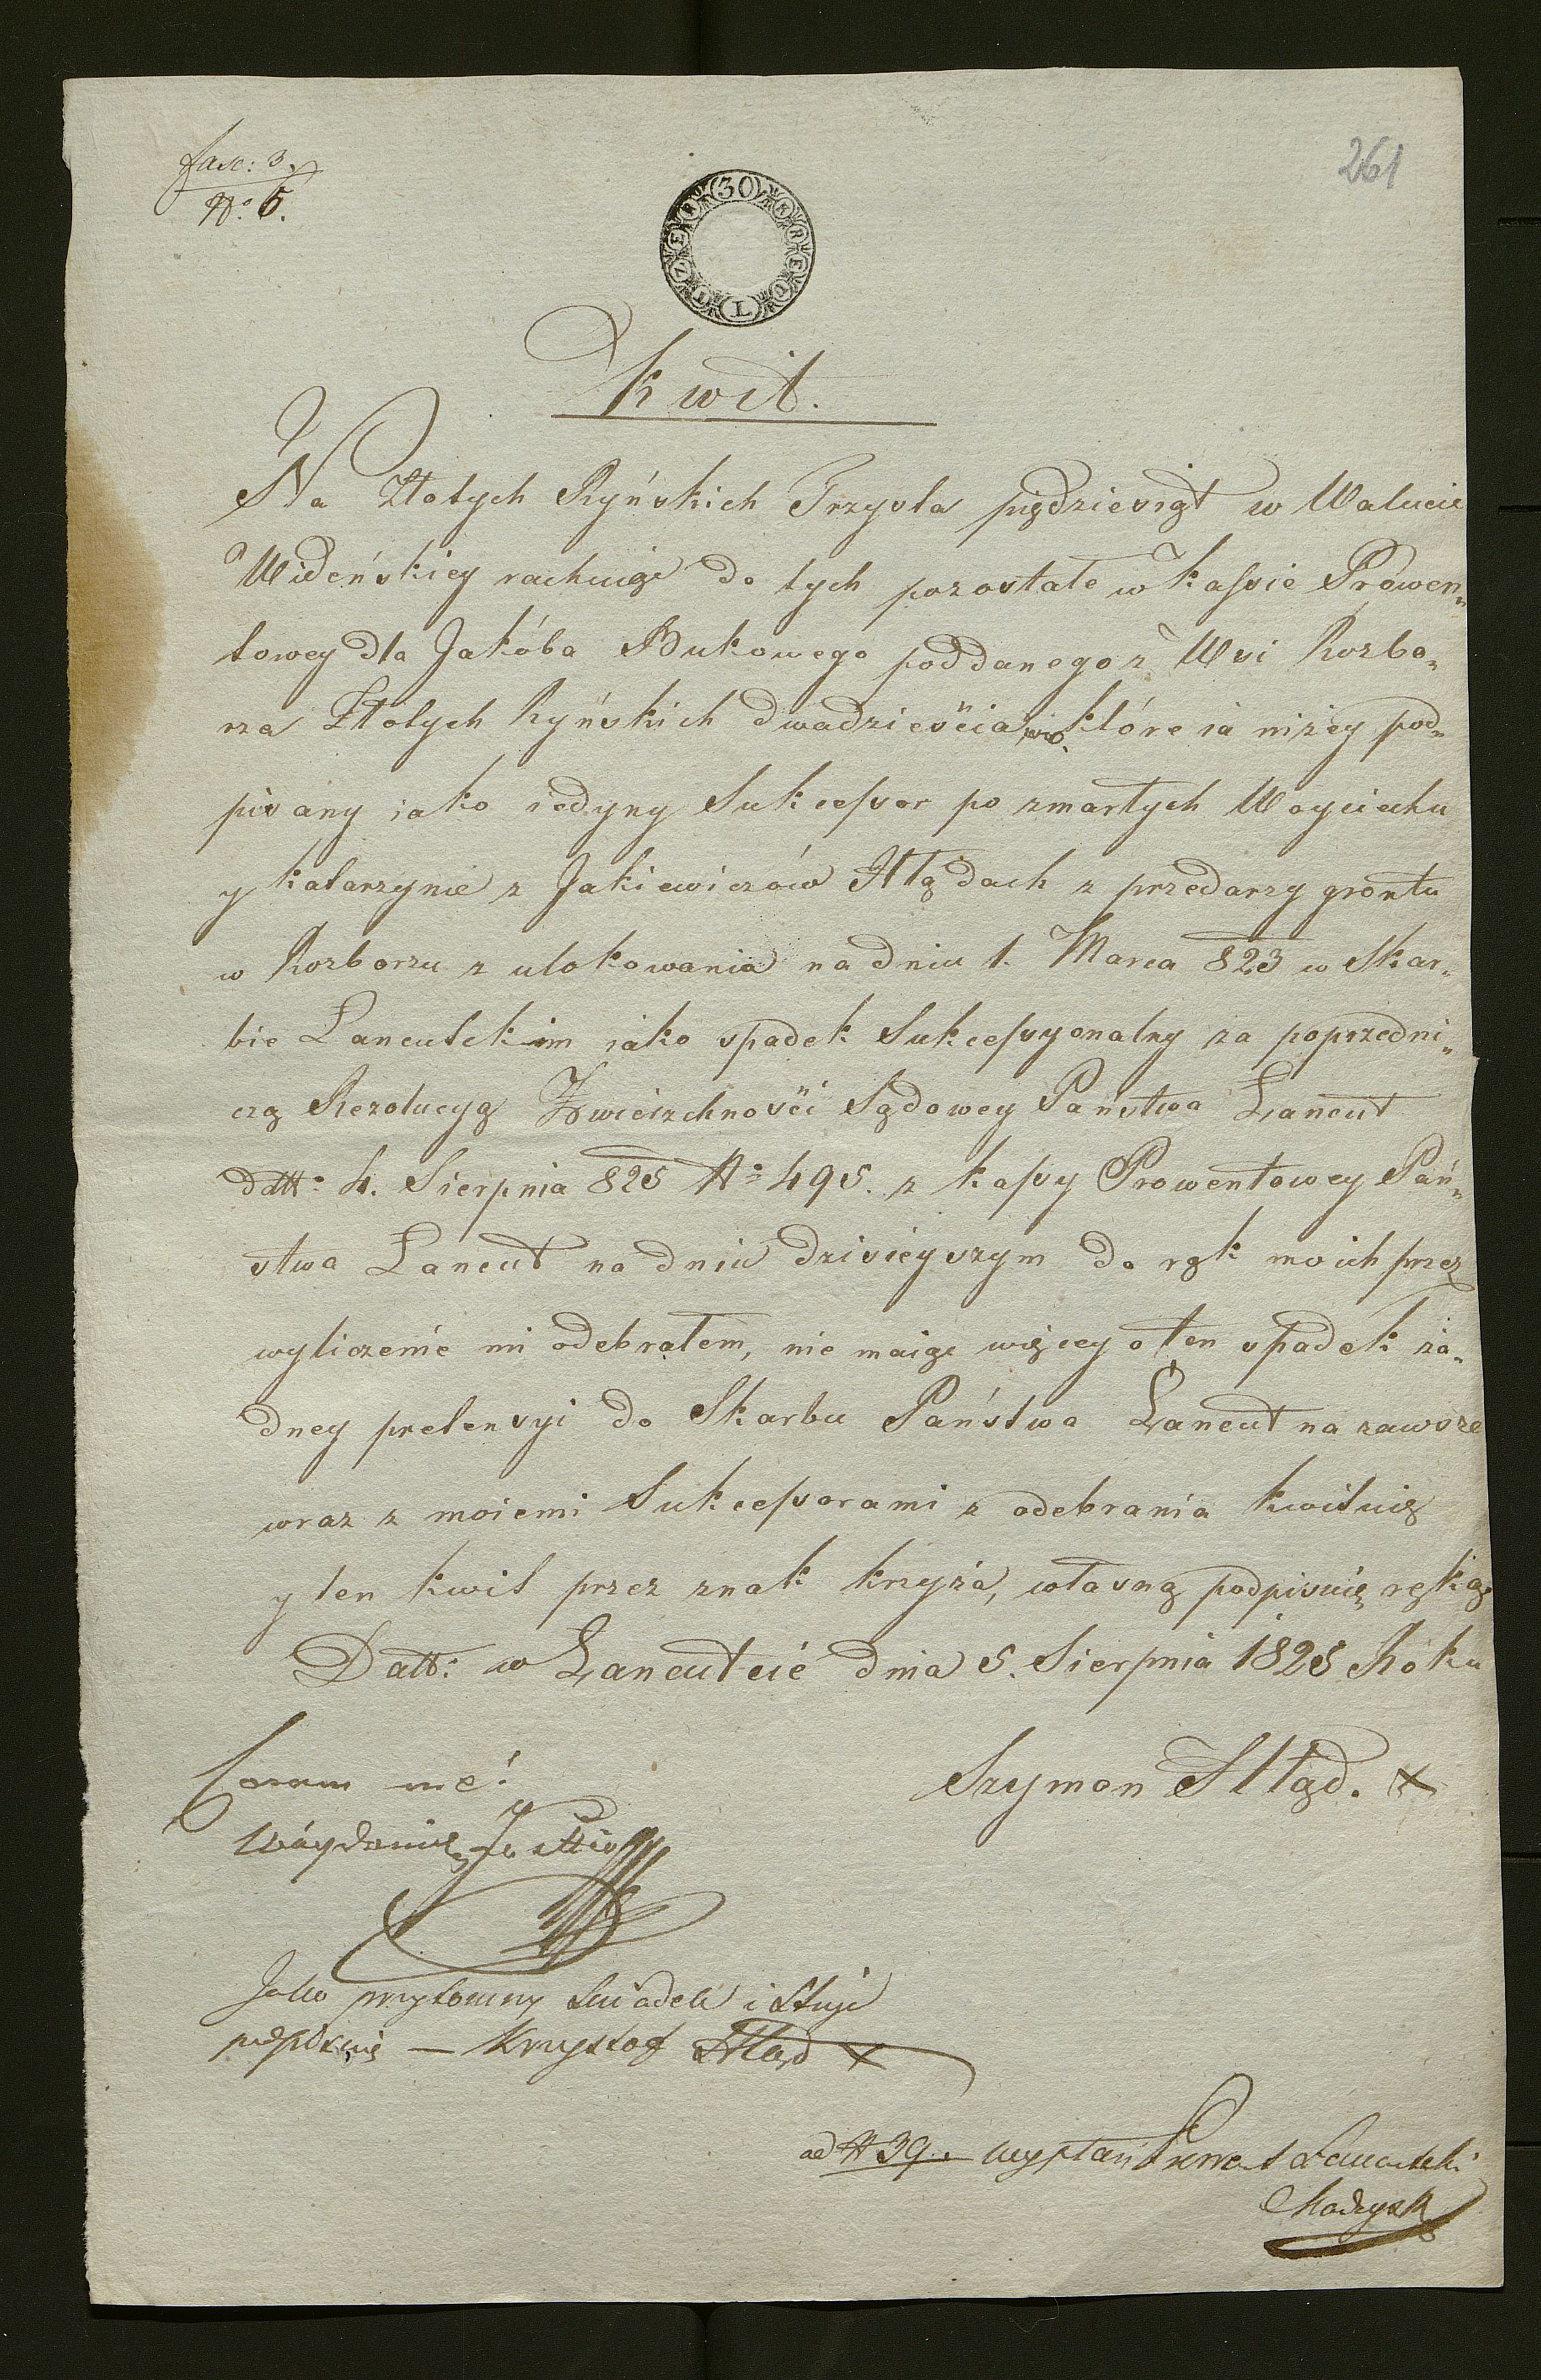 fasc: 3.
No. 5.
261
30 KREUTZER
Kwit.
Na Złotych Ryńskich Trzysta piędziesiąt w Walucie
Wideńskiey rachuiąc do tych pozostałe w Kassie Prowen„
towey dla Jakóba Bukowego poddanego z Wsi Rozbo„
rza Złotych Ryńskich dwadzieścia, które ia niżey pod„
pisany iako iedyny Sukcessor po zmarłych Woyciechu
y Katarzynie z Jakiewiczów Kłądach z przedarzy grontu
w Rozborzu z ulokowania na dniu 1. Marca 823 w Skar„
bie Lancutskim iako spadek Sukcessyonalny za poprzedni„
czą Rezolucyą Zwierzchności Sądowey Państwa Lancut
datt: 4. Sierpnia 825 No 495. z kassy Prowentowey Pań„
stwa Lancut na dniu dzisieyszym do rąk moich przez
wyliczenie mi odebrałem, nie maiąc więcey o ten spadek ża„
dney pretensyi do Skarbu Państwa Lancut na zawsze
wraz z moiemi Sukcessorami z odebrania kwituię
y ten kwit przez znak krzyża, własną podpisuię ręką
Datt: w Lancutcie dnia 5. Sierpnia 1825 Roku
Coram me:
Szymon Kłąd. X
Jako przytomny Swiadek i
podpisuię — Krysztof Kłąd X
ad N 39.